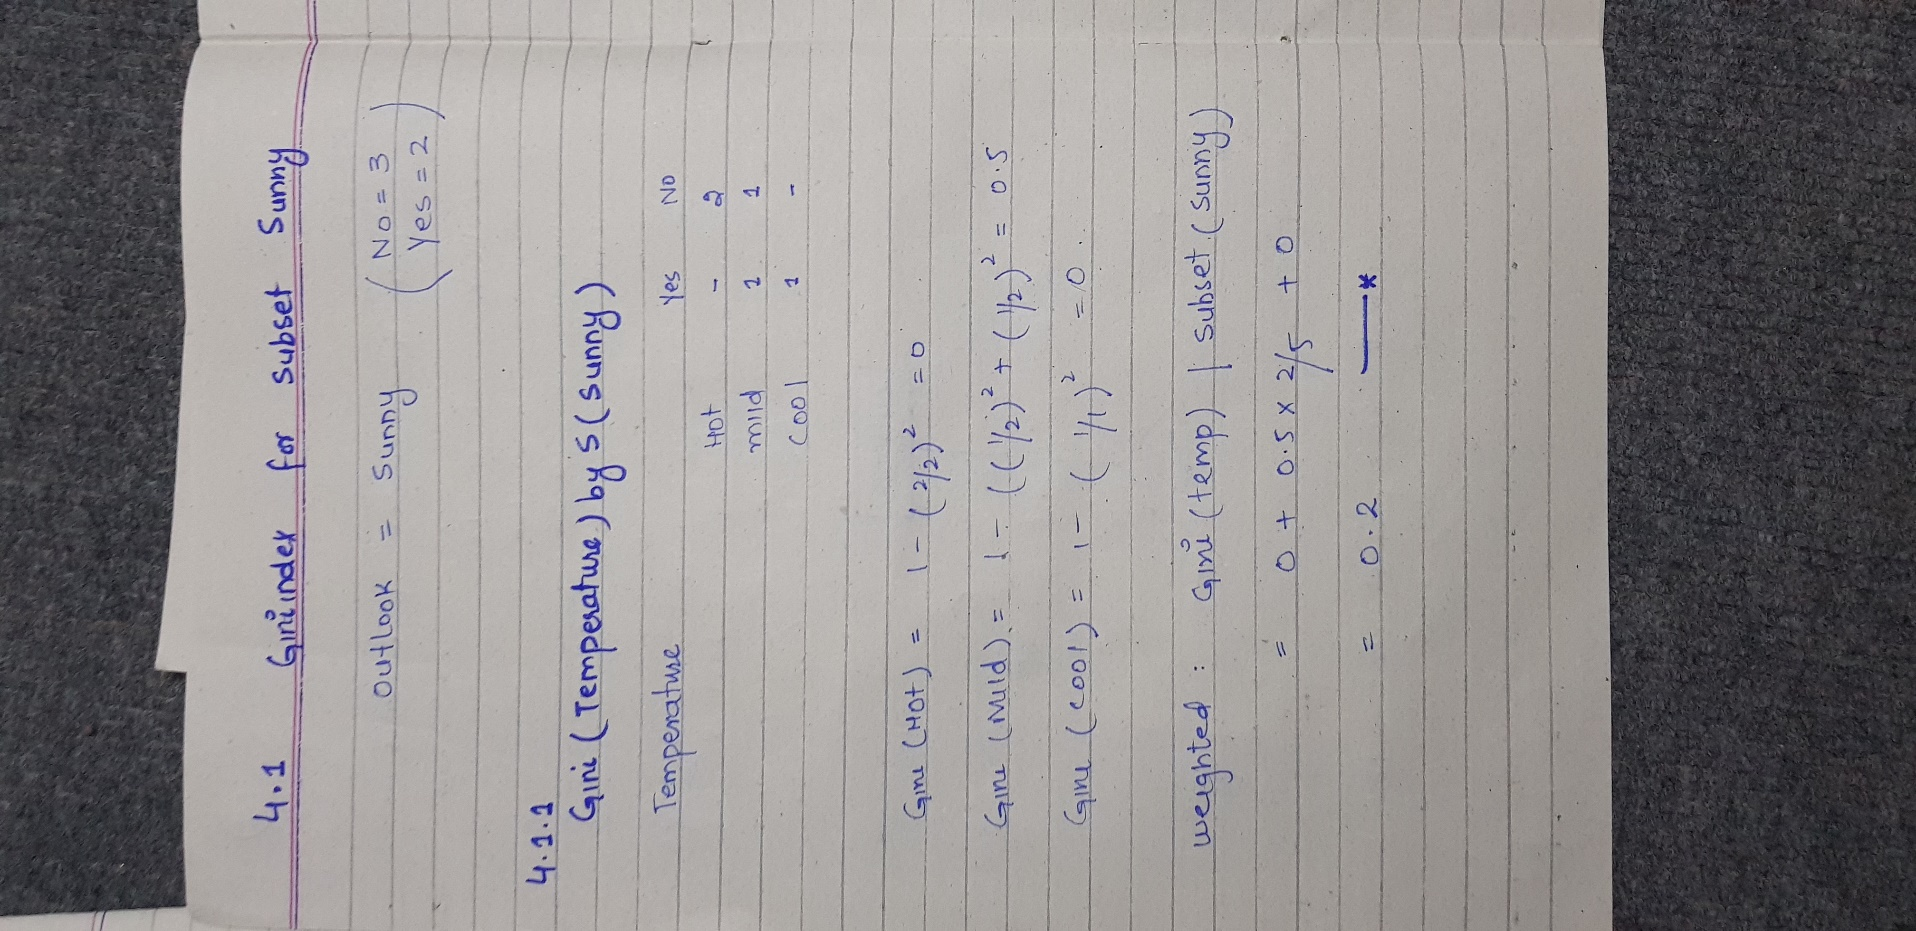 4.1 Gini index for subset Sunny
Outlook = Sunny (No = 3
Yes = 2)
4.1.1
Gini (Temperature) by S (Sunny)
Temperature Yes No
Hot - 2
mild 1 1
Cool 1 -
Gini (Hot) = 1 - (2/2)² = 0
Gini (Mild) = 1 - ((1/2)² + (1/2)² = 0.5
Gini (Cool) = 1 - (1/1)² = 0
weighted : Gini (temp) | subset (sunny)
= 0 + 0.5 x 2/5 + 0
= 0.2 —*